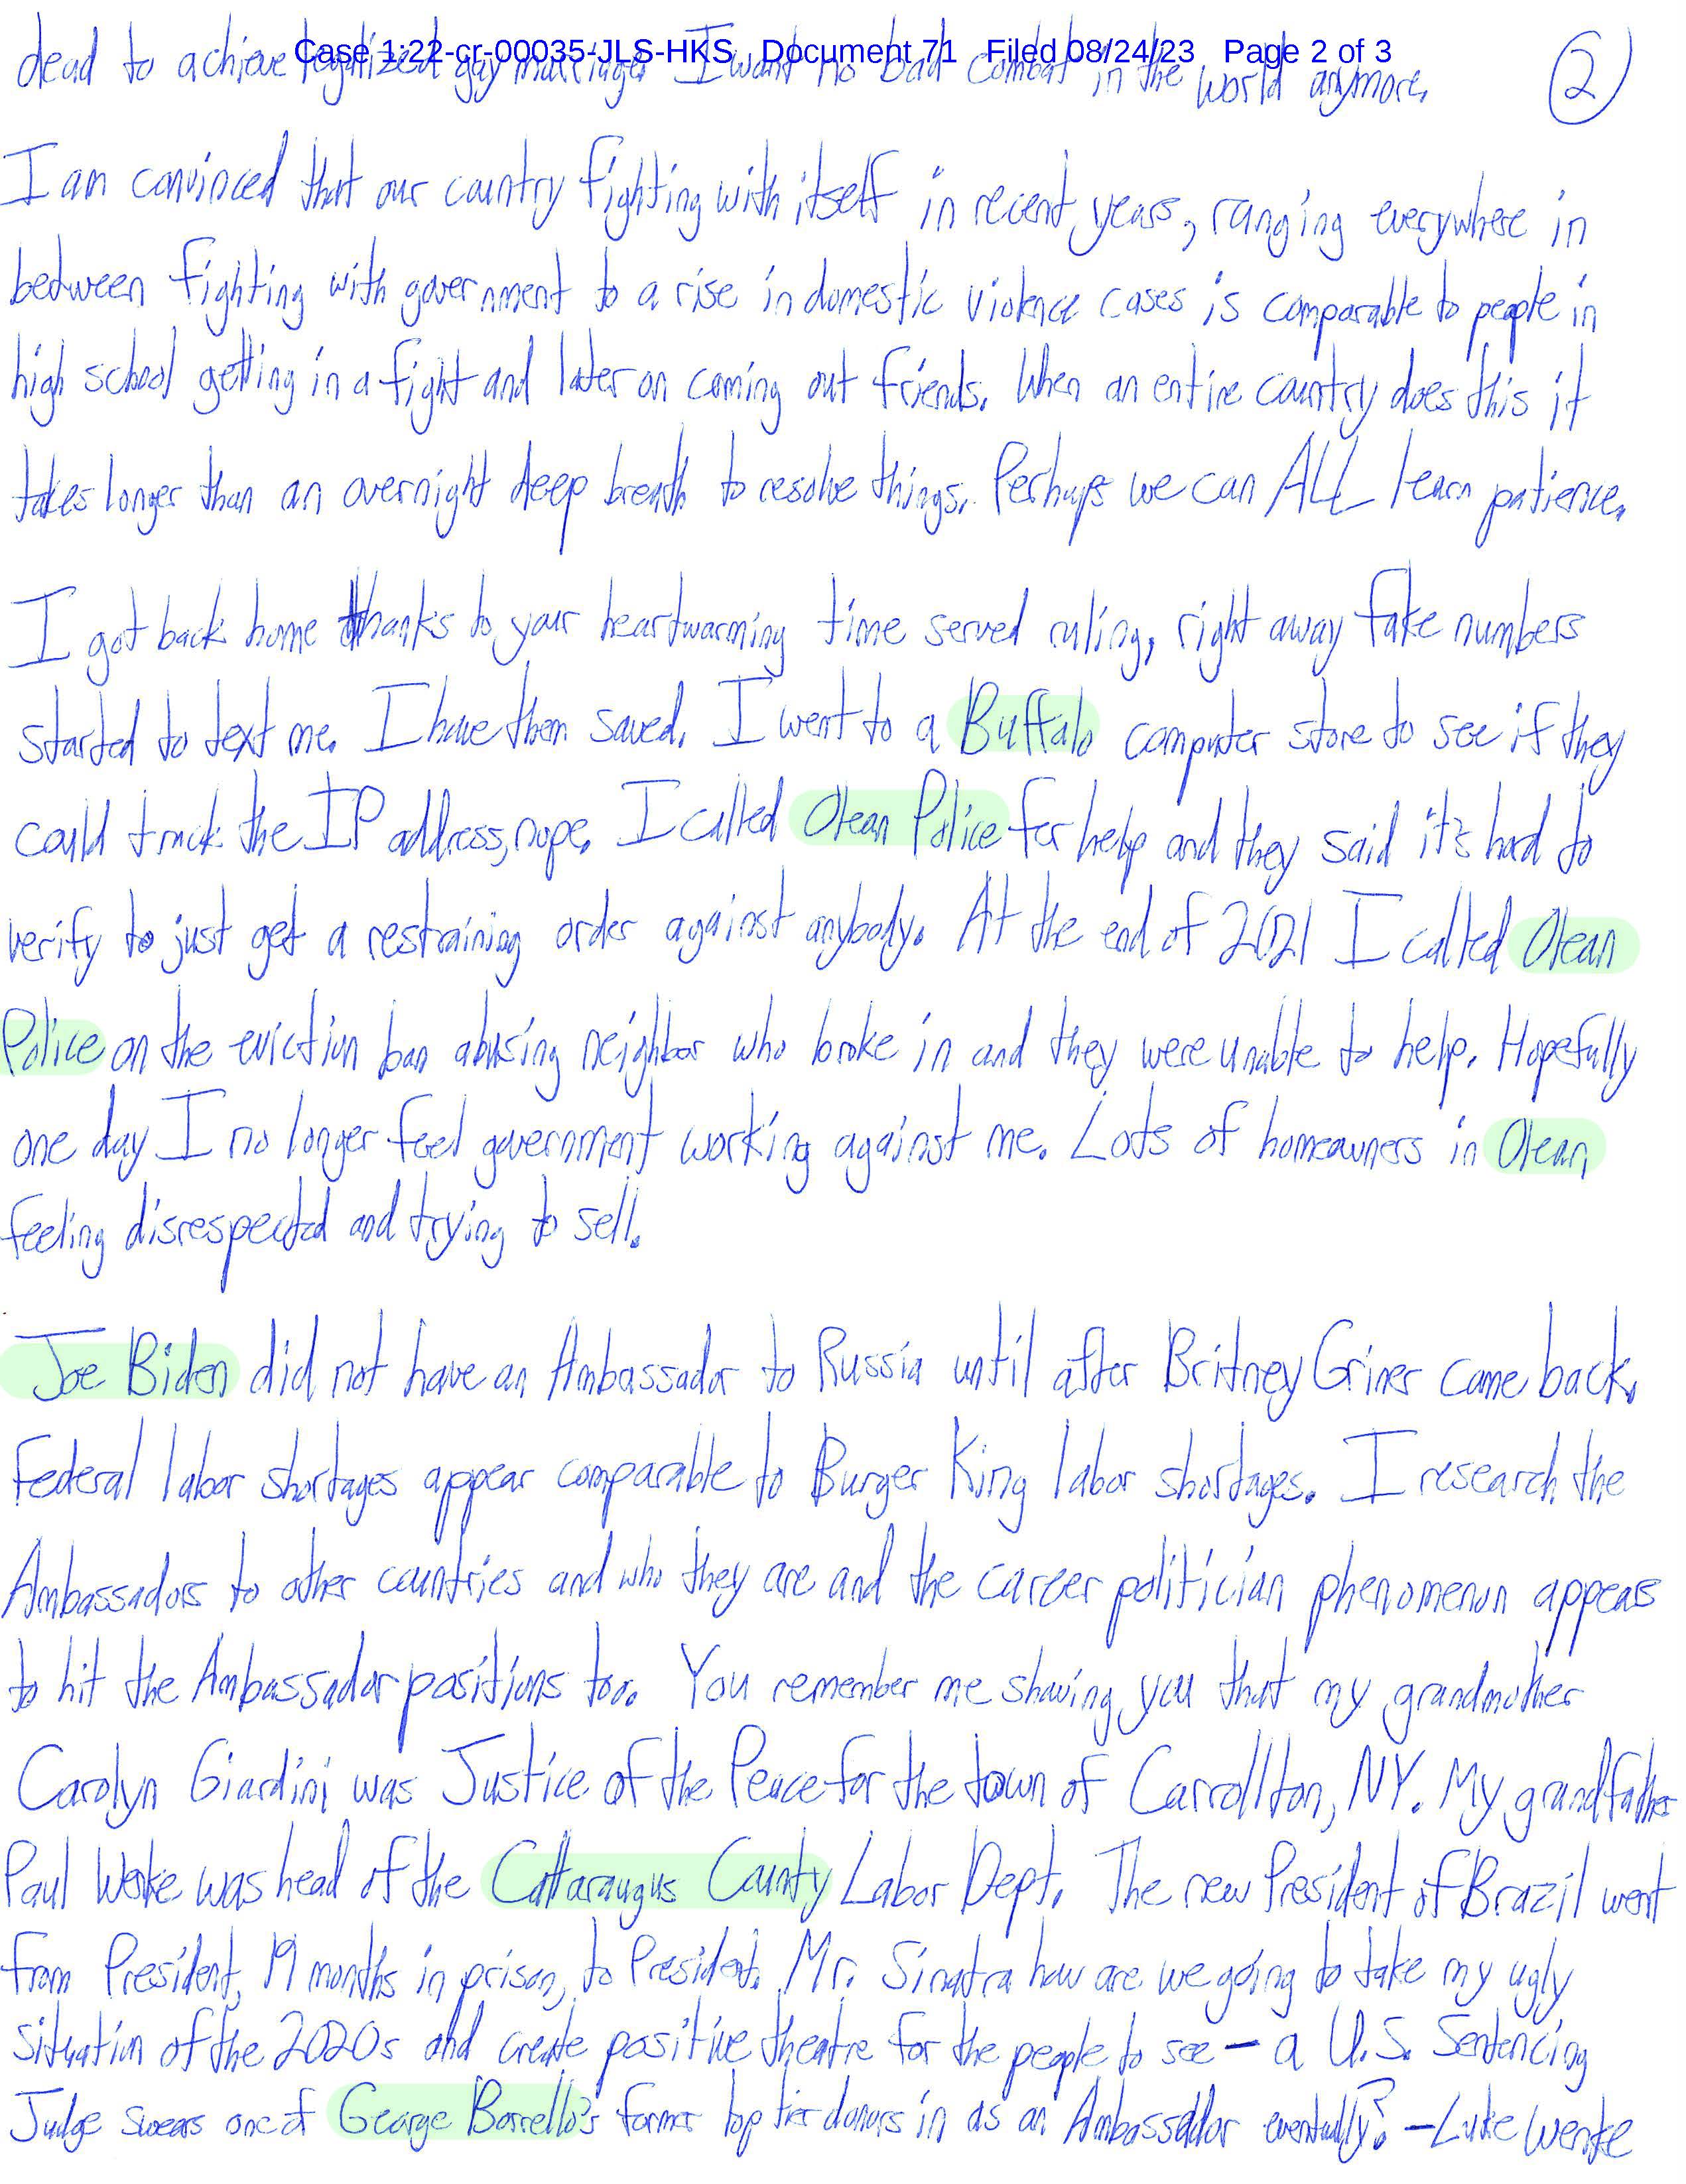 Case 1:22-cr-00035-JLS-HKS Document 71 Filed 08/24/23 Page 2 of 3
dead to achieve legalized gay marriage. I want no bad combat in the world anymore. 2
I am convinced that our country fighting with itself in recent years, ranging everywhere in
between fighting with government to a rise in domestic violence cases is comparable to people in
high school getting in a fight and later on coming out friends. When an entire country does this it
takes longer than an overnight deep breath to resolve things. Perhaps we can ALL learn patience.
I got back home thanks to your heartwarming time served ruling, right away fake numbers
started to text me. I have them saved. I went to a Buffalo computer store to see if they
could track the IP address, nope. I called Olean Police for help and they said it's hard to
verify to just get a restraining order against anybody. At the end of 2021 I called Olean
Police on the eviction ban abusing neighbor who broke in and they were unable to help. Hopefully
one day I no longer feel government working against me. Lots of homeowners in Olean
feeling disrespected and trying to sell.
Joe Biden did not have an Ambassador to Russia until after Britney Griner came back.
Federal labor shortages appear comparable to Burger King labor shortages. I research the
Ambassadors to other countries and who they are and the career politician phenomenon appears
to hit the Ambassador positions too. You remember me showing you that my grandmother
Carolyn Giardini was Justice of the Peace for the town of Carrollton, NY. My grandfather
Paul Wenke was head of the Cattaraugus County Labor Dept. The new President of Brazil went
from President, 19 months in prison, to President. Mr. Sinatra how are we going to take my ugly
situation of the 2020s and create positive theatre for the people to see – a U.S. Sentencing
Judge swears one of George Borrello's former top tier donors in as an Ambassador eventually? –Luke Wenke